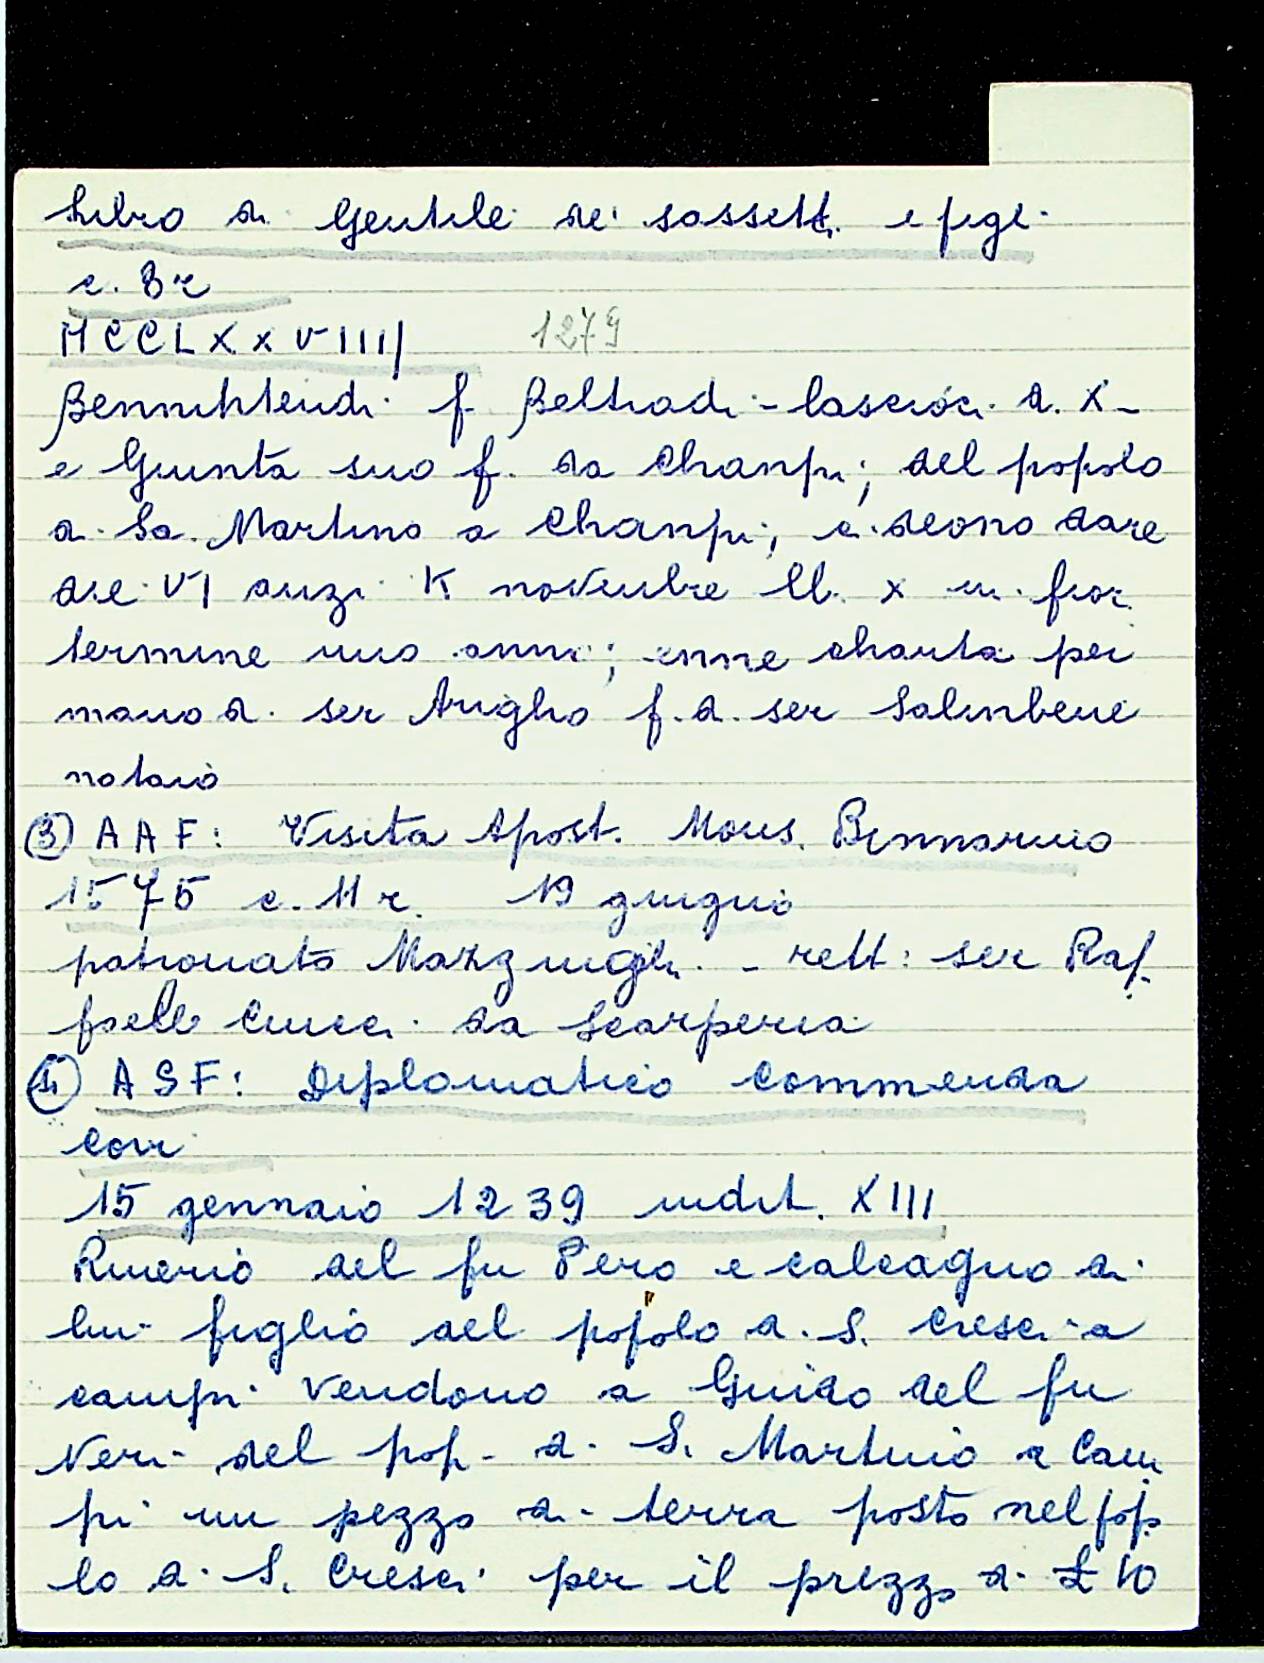 Libro di Gentile de' Sassetti e figi
c. 8 r
MCCLXXVIIII 1279
Bennintendi f. Beltradi - lascioci d. X -
e Giunta suo f. da Chanpi; del popolo
di Sa. Martino a Chanpi; ci deono dare
die VI anzi K novenbre lb. X in fior.
termine uno anno; enne charta per
mano di ser Arigho f. di ser Salinbene
notaio
③ AAF: Visita Apost. Mons. Binnarino
1575 c. 11 r. 19 giugno
patronato Mazzinghi - rett: ser Raf-
faello Ciucci da Scarperia
④ ASF: Diplomatico Commenda
Covi
15 gennaio 1239 indit. XIII
Rinerio del fu Pero e Calcagno di
lui figlio del popolo di S. Cresci a
Campi vendono a Guido del fu
Neri del pop. di S. Martino a Cam
pi un pezzo di terra posto nel pop
lo di S. Cresci per il prezzo di £ 10